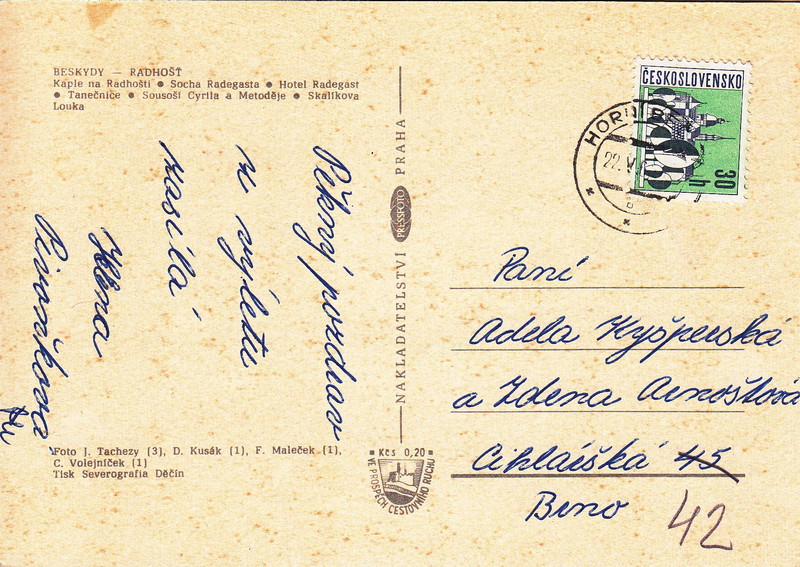 BESKYDY — RADHOŠŤ
Kaple na Radhošti ● Socha Radegasta ● Hotel Radegast
● Tanečnice ● Sousoší Cyrila a Metoděje ● Skalíkova
Louka
Pěkný pozdrav
z výletu
zasílá
Helena
NAKLADATELSTVÍ PRESSFOTO PRAHA
ČESKOSLOVENSKO
30
h
HORNÍ
22.V
Paní
Adela Kyšperská
a Zdena Arnoštová
Cihlářská 45
Brno 42
Foto J. Tachezy (3), D. Kusák (1), F. Maleček (1),
C. Volejníček (1)
Tisk Severografia Děčín
Kčs 0,20
VE PROSPĚCH CESTOVNÍHO RUCHU